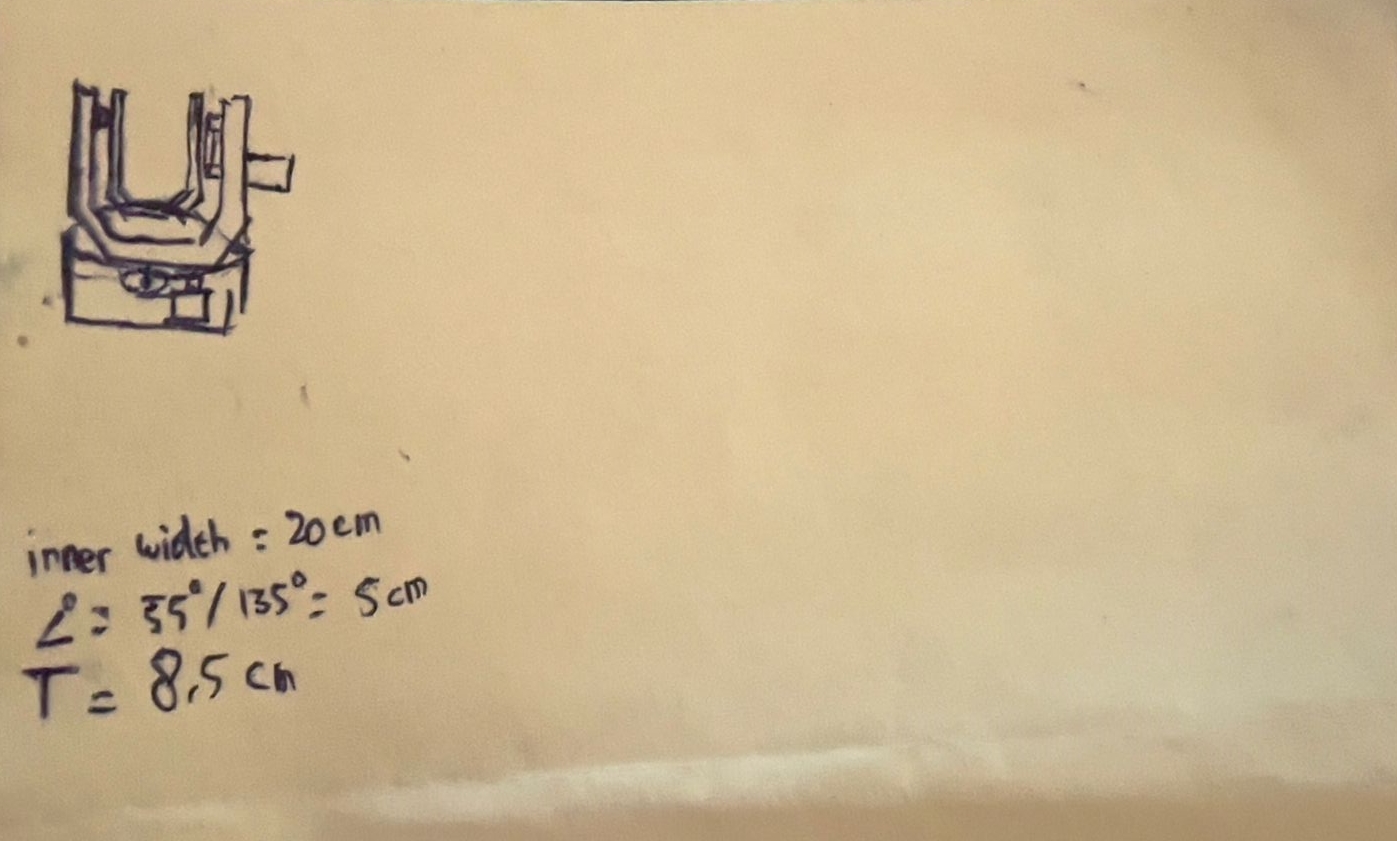 inner width = 20 cm
∠° = 55° / 135° = 5 cm
T = 8,5 cm